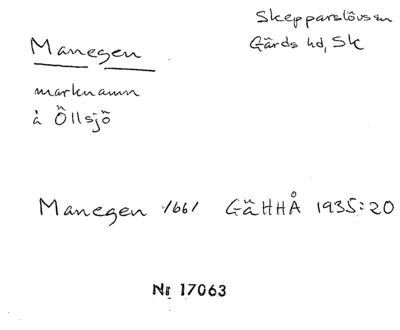 Manegen
Skepparslövs sn
Gärds hd, Sk
marknamn
å Öllsjö
Manegen 1661 GäHHÅ 1935:20
Nr 17063